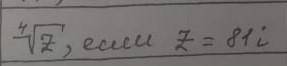 ∜z, если z = 81i